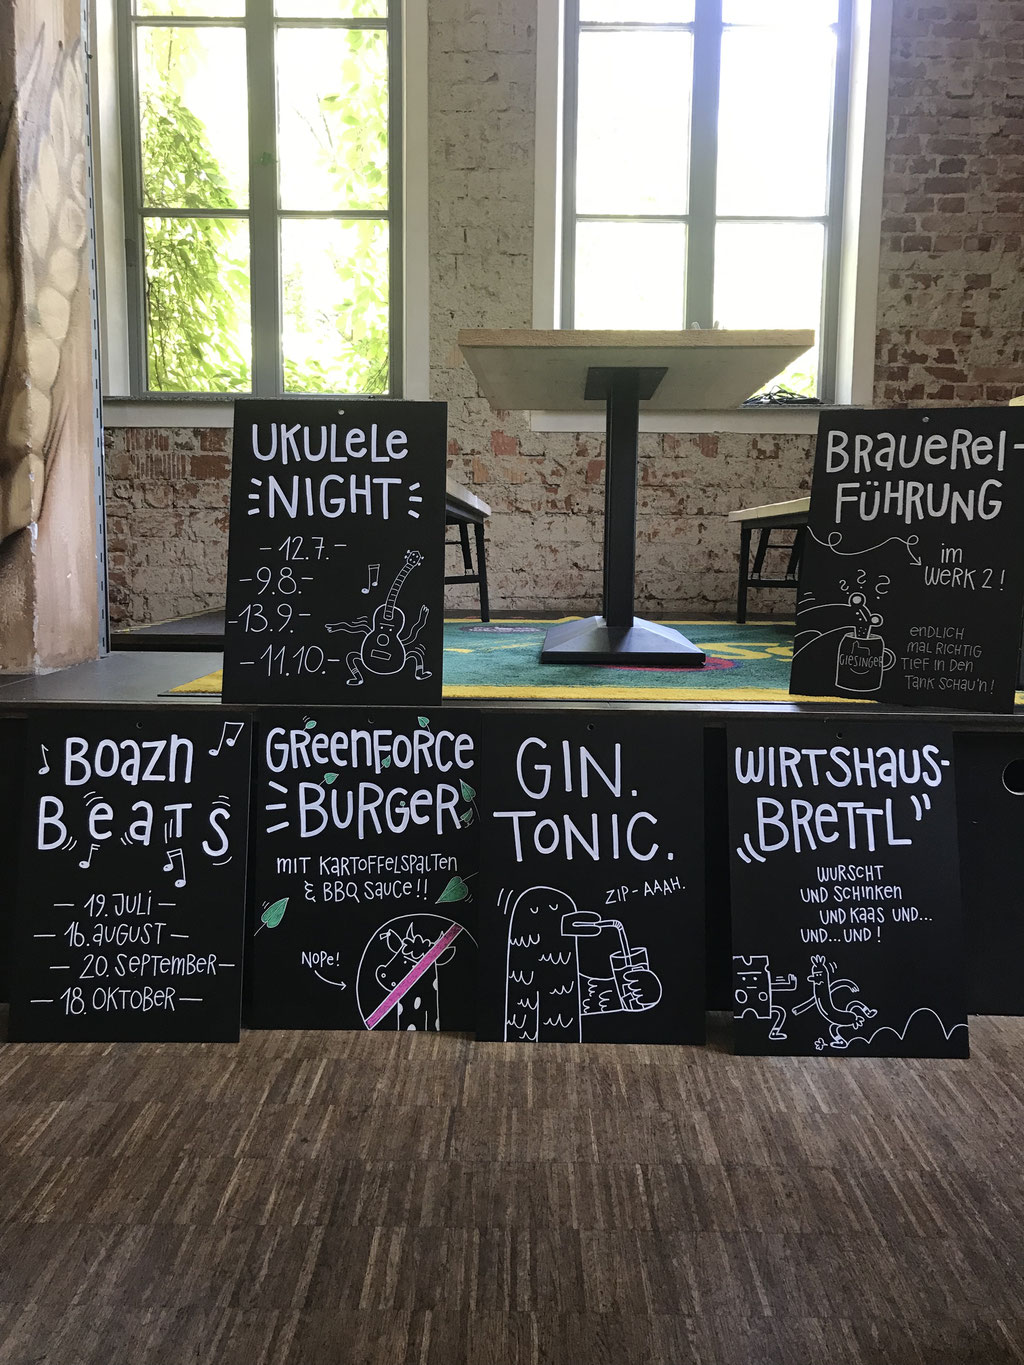 UKULELE
NIGHT
- 12.7. -
- 9.8. -
- 13.9. -
- 11.10. -
BRAUEREI-
FÜHRUNG
im
WERK 2!
ENDLICH
MAL RICHTIG
TIEF IN DEN
TANK SCHAU'N!
GIESINGER
BOAZN
BEATS
- 19. JULI -
- 16. AUGUST -
- 20. SEPTEMBER -
- 18. OKTOBER -
GREENFORCE
BURGER
MIT KARTOFFELSPALTEN
& BBQ SAUCE!!
NOPE!
GIN.
TONIC.
ZIP-AAAH.
WIRTSHAUS-
„BRETTL”
WURSCHT
UND SCHINKEN
UND KAAS UND...
UND...UND!